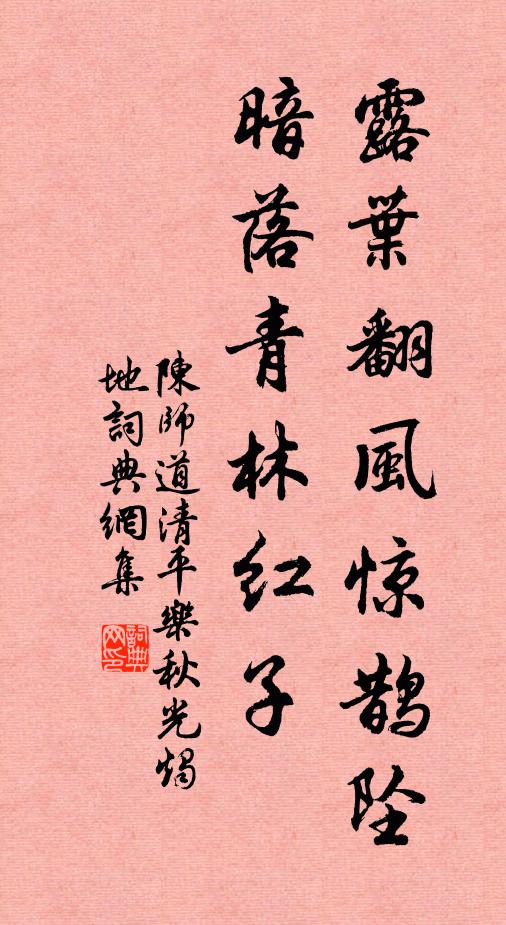 露葉翻風惊鹊坠
暗落青林红子
陳師道清平樂秋光燭
地詞典網集
詞典
网印